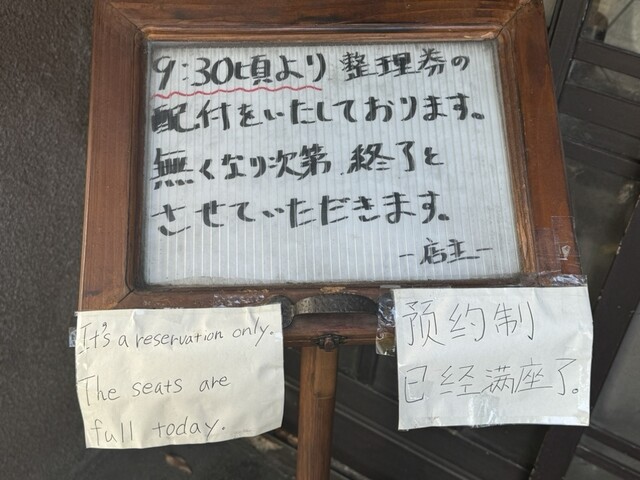 9:30頃より 整理券の
配付をいたしております。
無くなり次第 終了と
させていただきます。
-店主-
It's a reservation only.
The seats are
full today.
预约制
已经满座了。